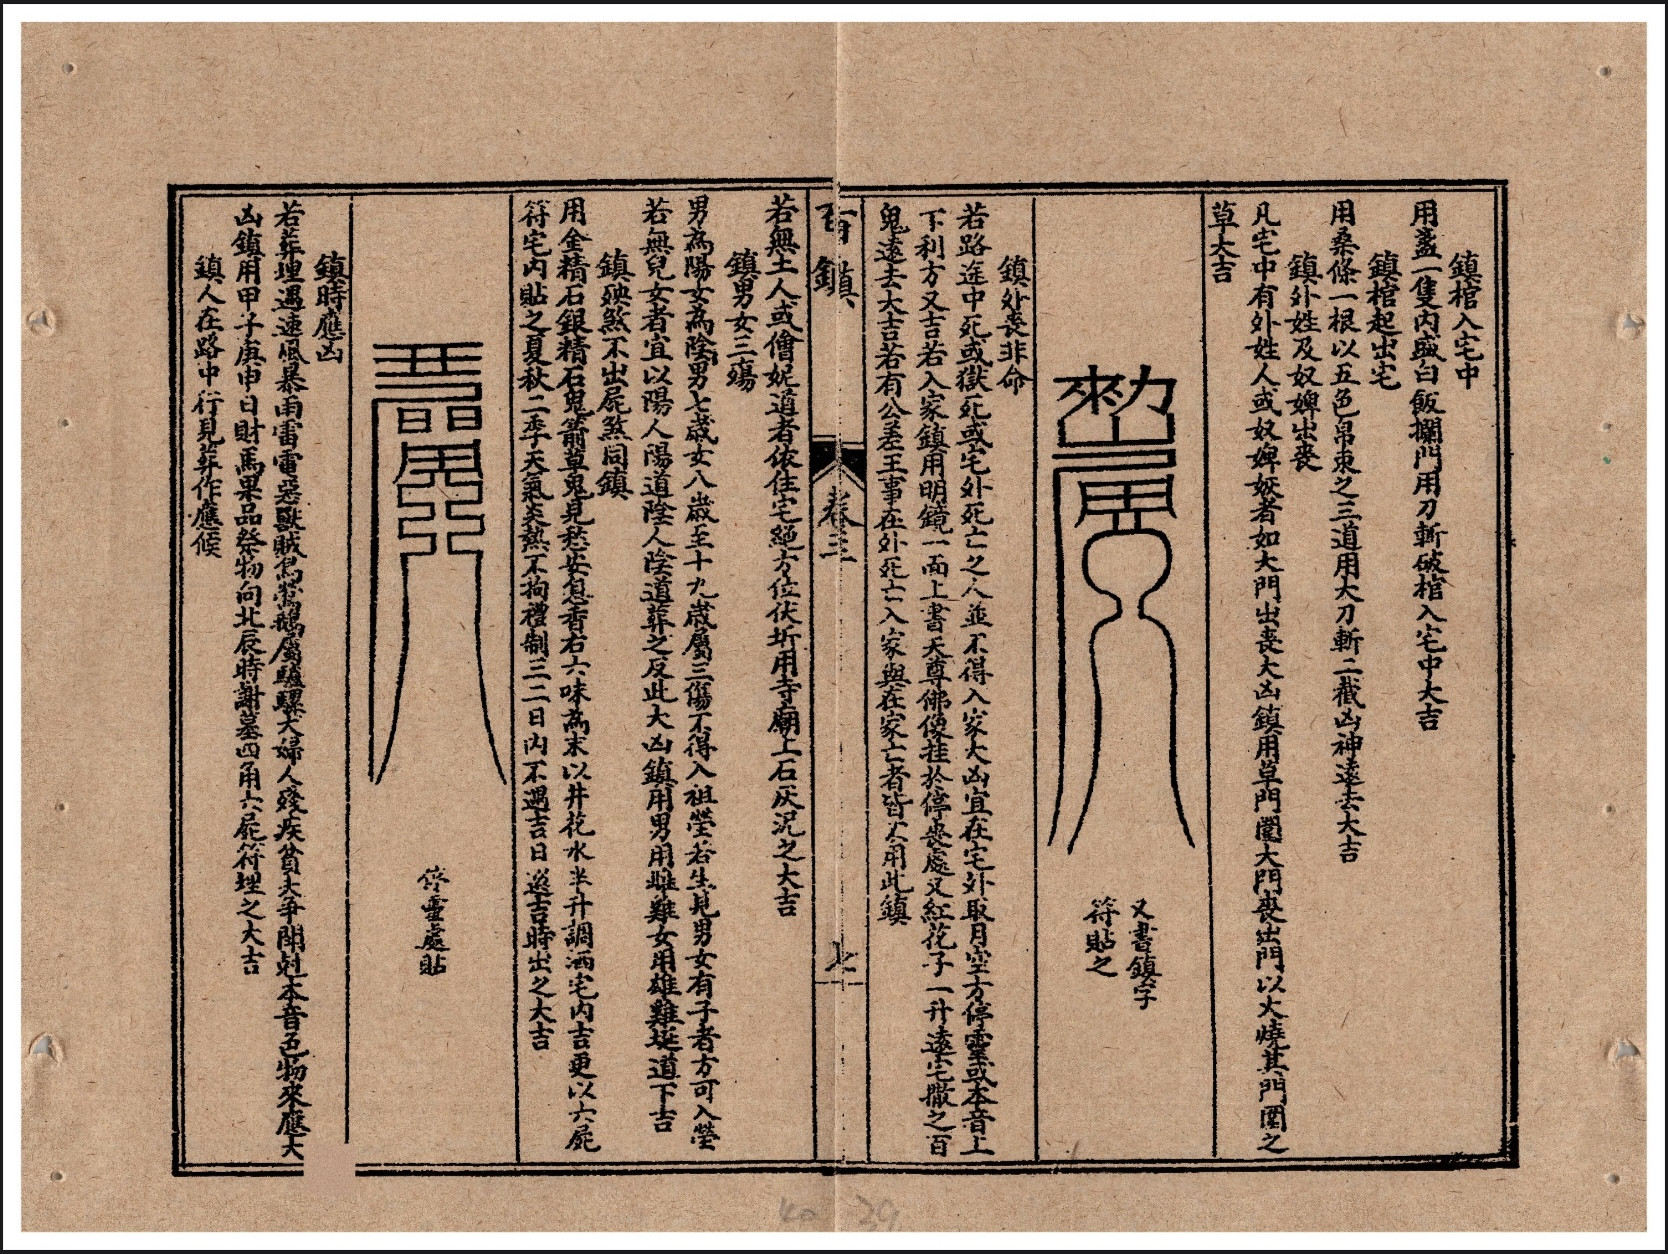 鎮棺入宅中
用盞一隻内盛白飯攔門用刀斬破棺入宅中大吉
鎮棺起出宅
用桑條一根以五色帛束之三道用大刀斬二截凶神遠去大吉
鎮外姓及奴婢出喪
凡宅中有外姓人或奴婢妖者如大門出喪大凶鎮用草門圈大門喪出門以火燒其門圈之
草大吉
又書鎮字
符貼之
鎮外喪非命
若路途中死或獄死或宅外死亡之人並不得入家大凶宜在宅外取月空方停靈或本音上
下利方又吉若入家鎮用明鏡一面上書天尊佛像挂於停喪處又紅花子一升遶宅撒之百
鬼遠去大吉若有公差王事在外死亡入家與在家亡者皆不用此鎮
百鎮
卷三
七
若無土人或僧妮道者依住宅絕方位伏斩用寺廟上石灰泥之大吉
鎮男女三殤
男為陽女為陰男七歲女八歲至十九歲屬三傷不得入祖塋若生見男女有子者方可入塋
若無兒女者宜以陽人陽道陰人陰道葬之反此大凶鎮用男用雌雞女用雄雞埏道下吉
鎮殃煞不出屍煞同鎮
用金精石銀精石鬼箭草鬼見愁安息香右六味為末以井花水半升調洒宅内吉更以六屍
符宅内貼之夏秋二季天氣炎熱不拘禮制三二日内不遇吉日巡吉時出之大吉
停靈處貼
鎮時應凶
若葬埋遇速風暴雨雷電惡獸賊鳥鶯鵝屬驢騾犬婦人殘疾貧夫爭鬧尅本音色物來應大
凶鎮用甲子庚申日財馬果品祭物向北辰時謝墓四角六屍符埋之大吉
鎮人在路中行見葬作應候